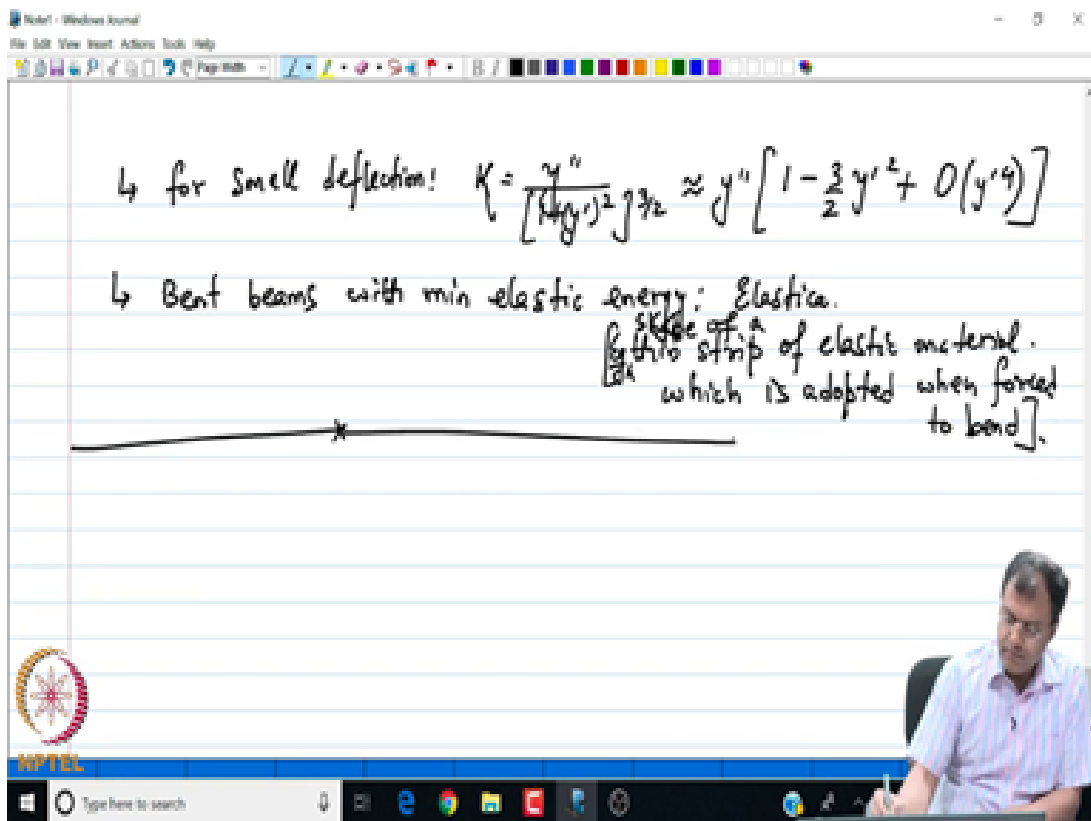 Note1 - Windows Journal
File Edit View Insert Actions Tools Help
Page Width
B I
↳ for small deflection: K = y'' / [1+(y')²]^3/2 ≈ y'' [1 - 3/2 y'² + O(y'⁴)]
↳ Bent beams with min elastic energy: Elastica.
shape of a
thin strip of elastic material.
which is adopted when forced
to bend].
NPTEL
Type here to search